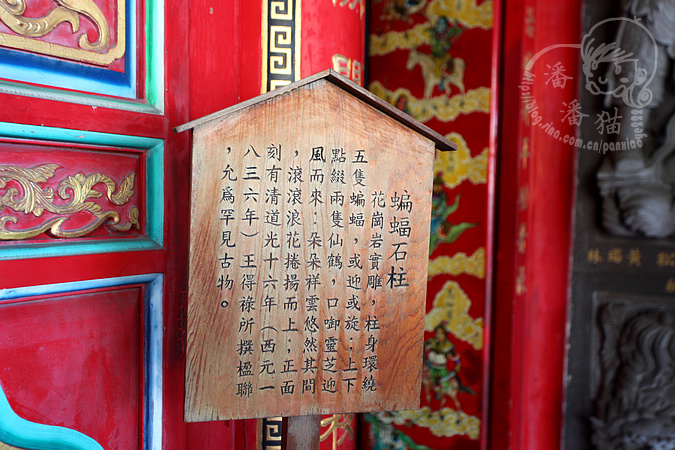 蝙蝠石柱
花崗岩實雕，柱身環繞
五隻蝙蝠，或迎或旋；上下
點綴兩隻仙鶴，口啣靈芝迎
風而來；朵朵祥雲悠然其間
，滾滾浪花捲揚而上；正面
刻有清道光十六年（西元一
八三六年）王得祿所撰楹聯
，允為罕見古物。
潘潘貓